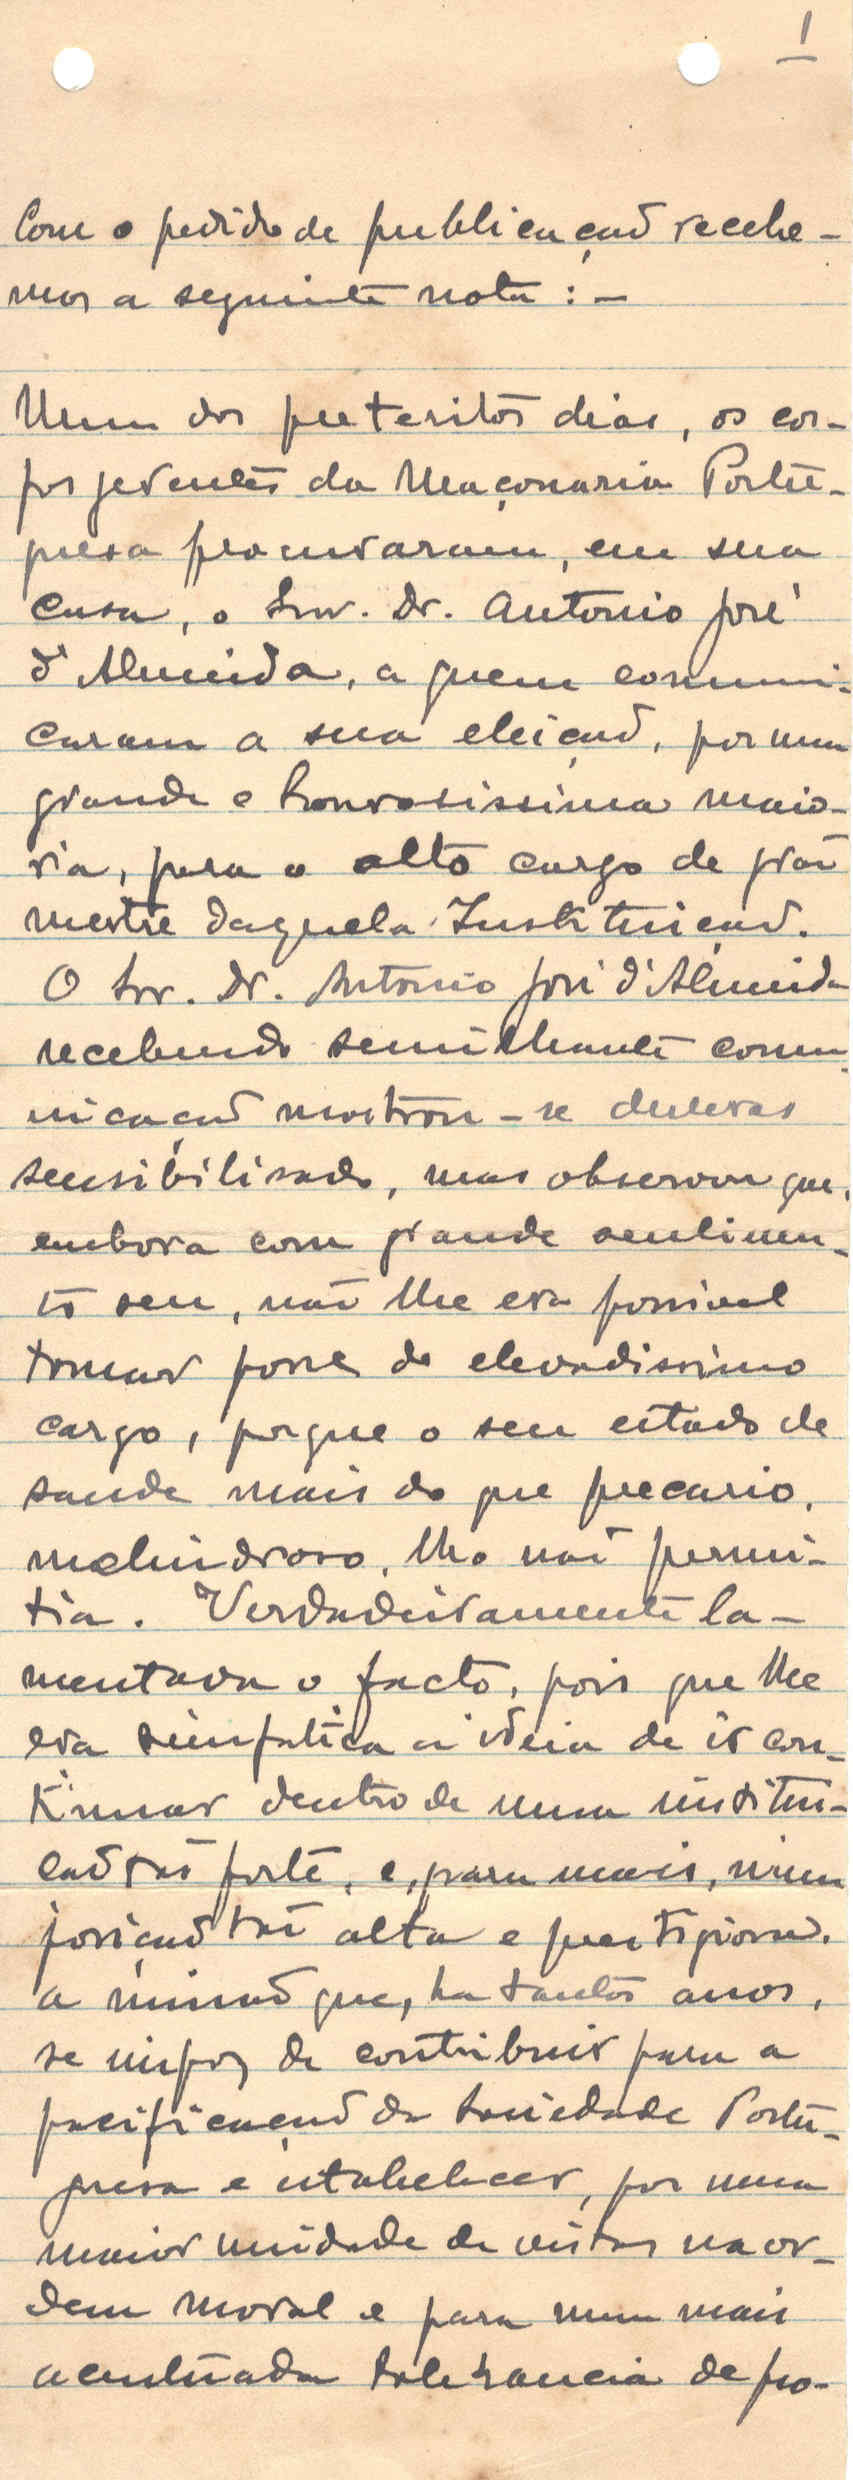 1
Com o pedido de publicação recebe-
mos a seguinte nota : -
Num dos preteritos dias, os cor-
pos gerentes da Maçonaria Portu-
guesa procuraram, em sua
casa, o Snr. Dr. Antonio José
d'Almeida, a quem comuni-
caram a sua eleição, por uma
grande e honrosissima maio-
ria, para o alto cargo de grão
mestre daquela Instituição.
O Snr. Dr. Antonio José d'Almeida
recebendo semilhante comu-
nicação mostrou-se deveras
sensibilisado, mas observou que,
embora com grande sentimen-
to seu, não lhe era possivel
tomar posse do elevadissimo
cargo, porque o seu estado de
saude mais do que precario,
melindroso, lho não permi-
tia. Verdadeiramente la-
mentava o facto, pois que lhe
era simpatica a ideia de ir con-
tinuar dentro de uma institui-
ção tão forte, e, para mais, numa
posição tão alta e prestigiosa,
a missão que, ha tantos anos,
se impoz de contribuir para a
pacificação da Sociedade Portu-
guesa e estabelecer, por uma
maior unidade de vistas na or-
dem moral e para uma mais
acentuada tolerancia de pro-